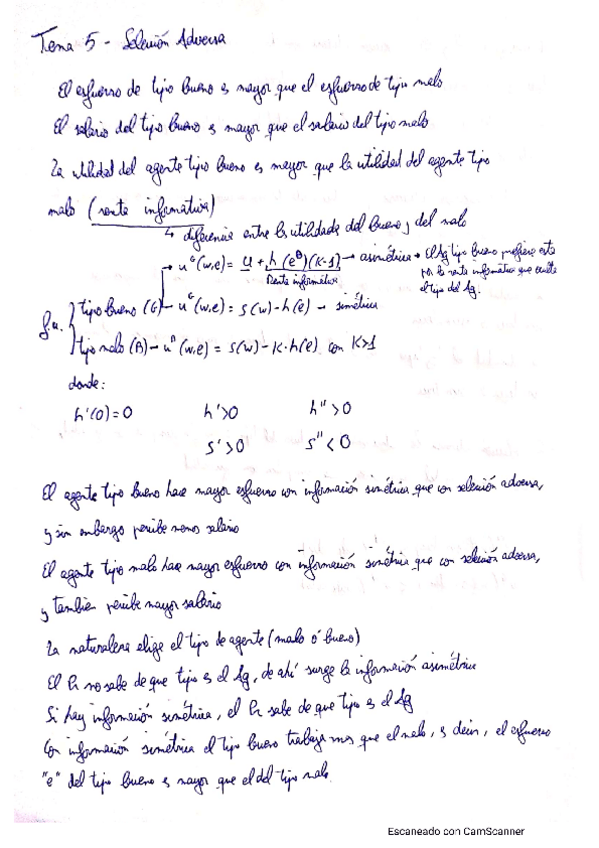 Tema 5 - Selección Adversa
El esfuerzo de tipo bueno es mayor que el esfuerzo de tipo malo
El salario del tipo bueno es mayor que el salario del tipo malo
La utilidad del agente tipo bueno es mayor que la utilidad del agente tipo
malo (renta informativa)
↳ diferencia entre las utilidades del bueno y del malo
→ u^G(w,e) = u + h(e^B)(K-1) → asimétrica → El Ag tipo bueno prefiere esta
Renta informativa
por la renta informativa que oculta
el tipo del Ag.
f.u. { tipo bueno (G) - u^G(w,e) = s(w) - h(e) - simétrica
tipo malo (B) - u^B(w,e) = s(w) - K·h(e) con K>1
donde:
h'(0)=0 h'>0 h''>0
s'>0 s''<0
El agente tipo bueno hace mayor esfuerzo con información simétrica que con selección adversa,
y sin embargo percibe menos salario
El agente tipo malo hace mayor esfuerzo con información simétrica que con selección adversa,
y también percibe mayor salario
La naturaleza elige el tipo de agente (malo ó bueno)
El Pr no sabe de que tipo es el Ag, de ahí surge la información asimétrica
Si hay información simétrica, el Pr sabe de que tipo es el Ag
Con información simétrica el tipo bueno trabaja mas que el malo, es decir, el esfuerzo
"e" del tipo bueno es mayor que el del tipo malo.
Escaneado con CamScanner